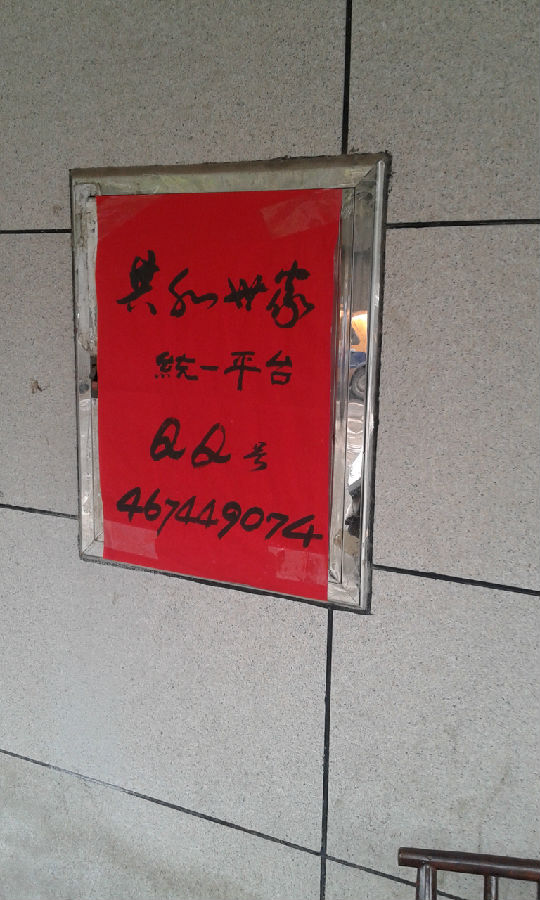 共和世家
統一平台
QQ号
467449074